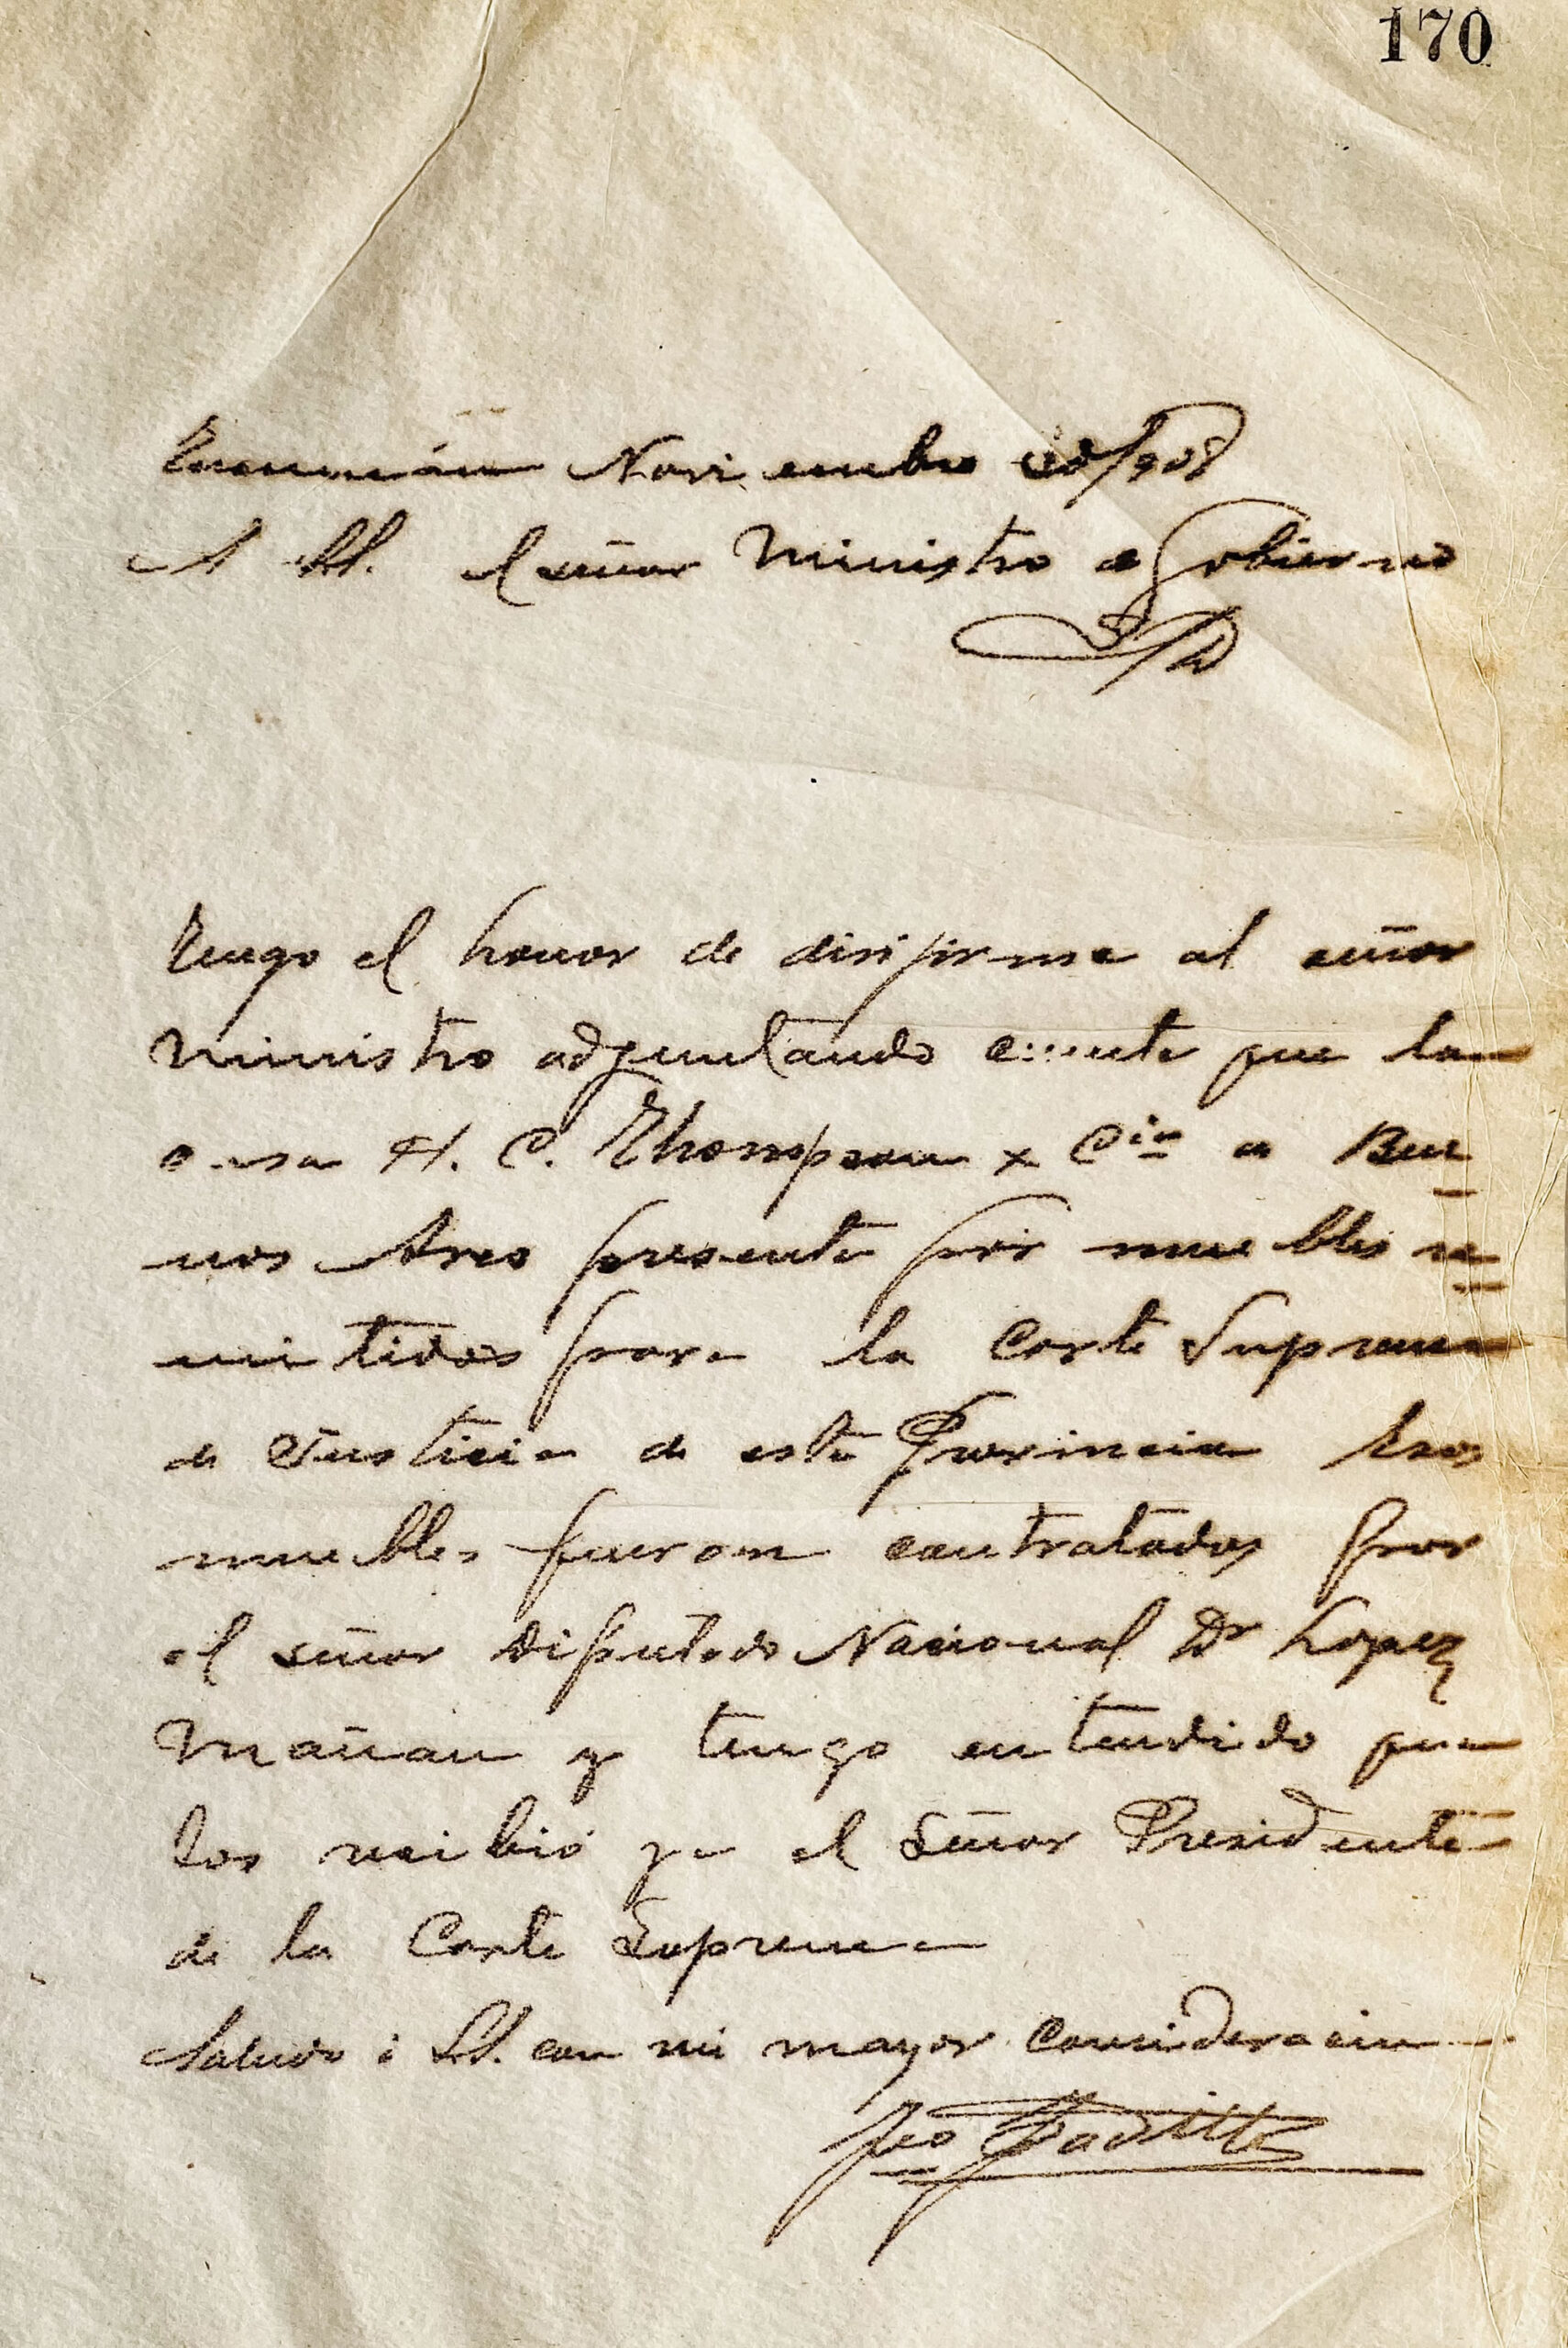 170
Tucumán Noviembre 20/908
A S.S. el señor Ministro de Gobierno
S/D
Tengo el honor de dirijirme al señor
Ministro adjuntando cuenta que la
casa H. C. Thompson x Cia de Bue
nos Ares presenta por muebles re
mitidos para la Corte Suprema
de Justicia de esta Provincia Esos
muebles fueron contratados por
el señor Diputado Nacional Dr Lopez
Mañan y tengo entendido que
los recibió ya el Señor Presidente
de la Corte Suprema
Saludo á S.S. con mi mayor consideracion
Padilla